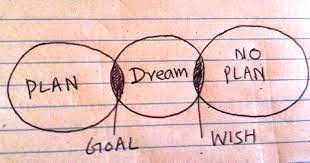 PLAN
Dream
NO
PLAN
GOAL
WISH